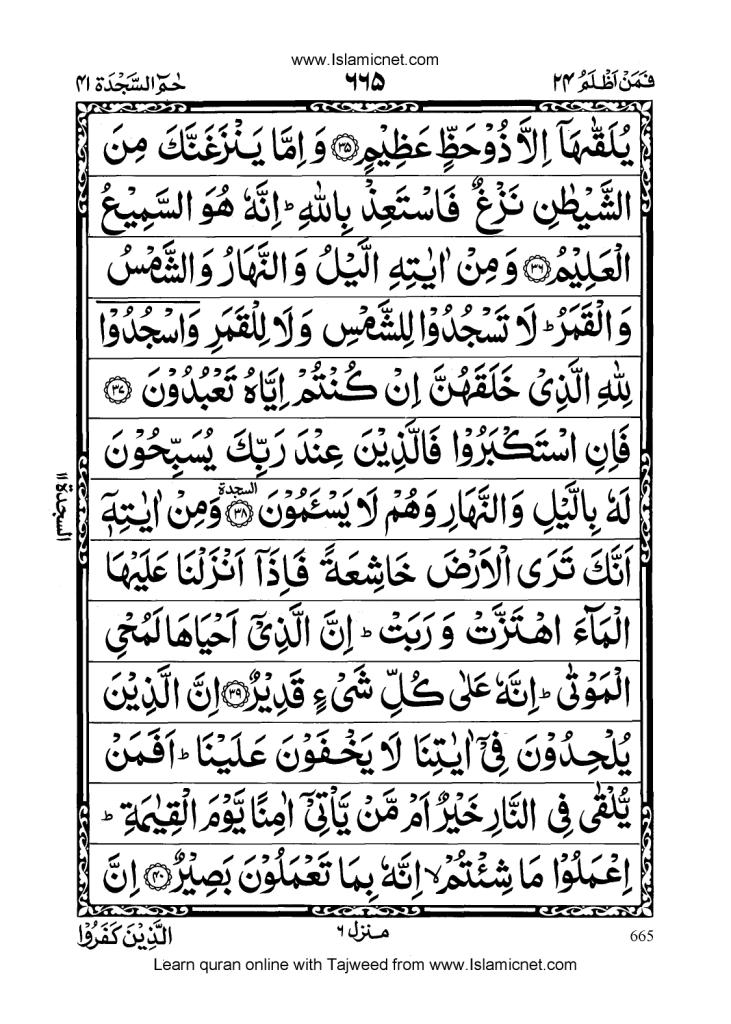 www.Islamicnet.com
فَمَنْ اَظْلَمُ ۲۴ ۶۶۵ حٰمٓ السَّجْدَة ۴۱
يُلَقّٰىهَاۤ اِلَّا ذُوْ حَظٍّ عَظِيْمٍ ﴿۳۵﴾ وَ اِمَّا يَنْزَغَنَّكَ مِنَ
الشَّيْطٰنِ نَزْغٌ فَاسْتَعِذْ بِاللّٰهِ ؕ اِنَّهٗ هُوَ السَّمِيْعُ
الْعَلِيْمُ ﴿۳۶﴾ وَ مِنْ اٰيٰتِهِ الَّيْلُ وَ النَّهَارُ وَ الشَّمْسُ
وَ الْقَمَرُ ؕ لَا تَسْجُدُوْا لِلشَّمْسِ وَ لَا لِلْقَمَرِ وَ اسْجُدُوْا
لِلّٰهِ الَّذِيْ خَلَقَهُنَّ اِنْ كُنْتُمْ اِيَّاهُ تَعْبُدُوْنَ ﴿۳۷﴾
فَاِنِ اسْتَكْبَرُوْا فَالَّذِيْنَ عِنْدَ رَبِّكَ يُسَبِّحُوْنَ
لَهٗ بِالَّيْلِ وَ النَّهَارِ وَ هُمْ لَا يَسْـَٔمُوْنَ ﴿۳۸﴾ السجدة وَ مِنْ اٰيٰتِهٖۤ
السجدة ۱۱
اَنَّكَ تَرَى الْاَرْضَ خَاشِعَةً فَاِذَاۤ اَنْزَلْنَا عَلَيْهَا
الْمَآءَ اهْتَزَّتْ وَ رَبَتْ ؕ اِنَّ الَّذِيْۤ اَحْيَاهَا لَمُحْيِ
الْمَوْتٰى ؕ اِنَّهٗ عَلٰى كُلِّ شَيْءٍ قَدِيْرٌ ﴿۳۹﴾ اِنَّ الَّذِيْنَ
يُلْحِدُوْنَ فِيْۤ اٰيٰتِنَا لَا يَخْفَوْنَ عَلَيْنَا ؕ اَفَمَنْ
يُّلْقٰى فِي النَّارِ خَيْرٌ اَمْ مَّنْ يَّاْتِيْۤ اٰمِنًا يَّوْمَ الْقِيٰمَةِ ؕ
اِعْمَلُوْا مَا شِئْتُمْ ۙ اِنَّهٗ بِمَا تَعْمَلُوْنَ بَصِيْرٌ ﴿۴۰﴾ اِنَّ
665 منزل ۶ الَّذِيْنَ كَفَرُوْا
Learn quran online with Tajweed from www.Islamicnet.com